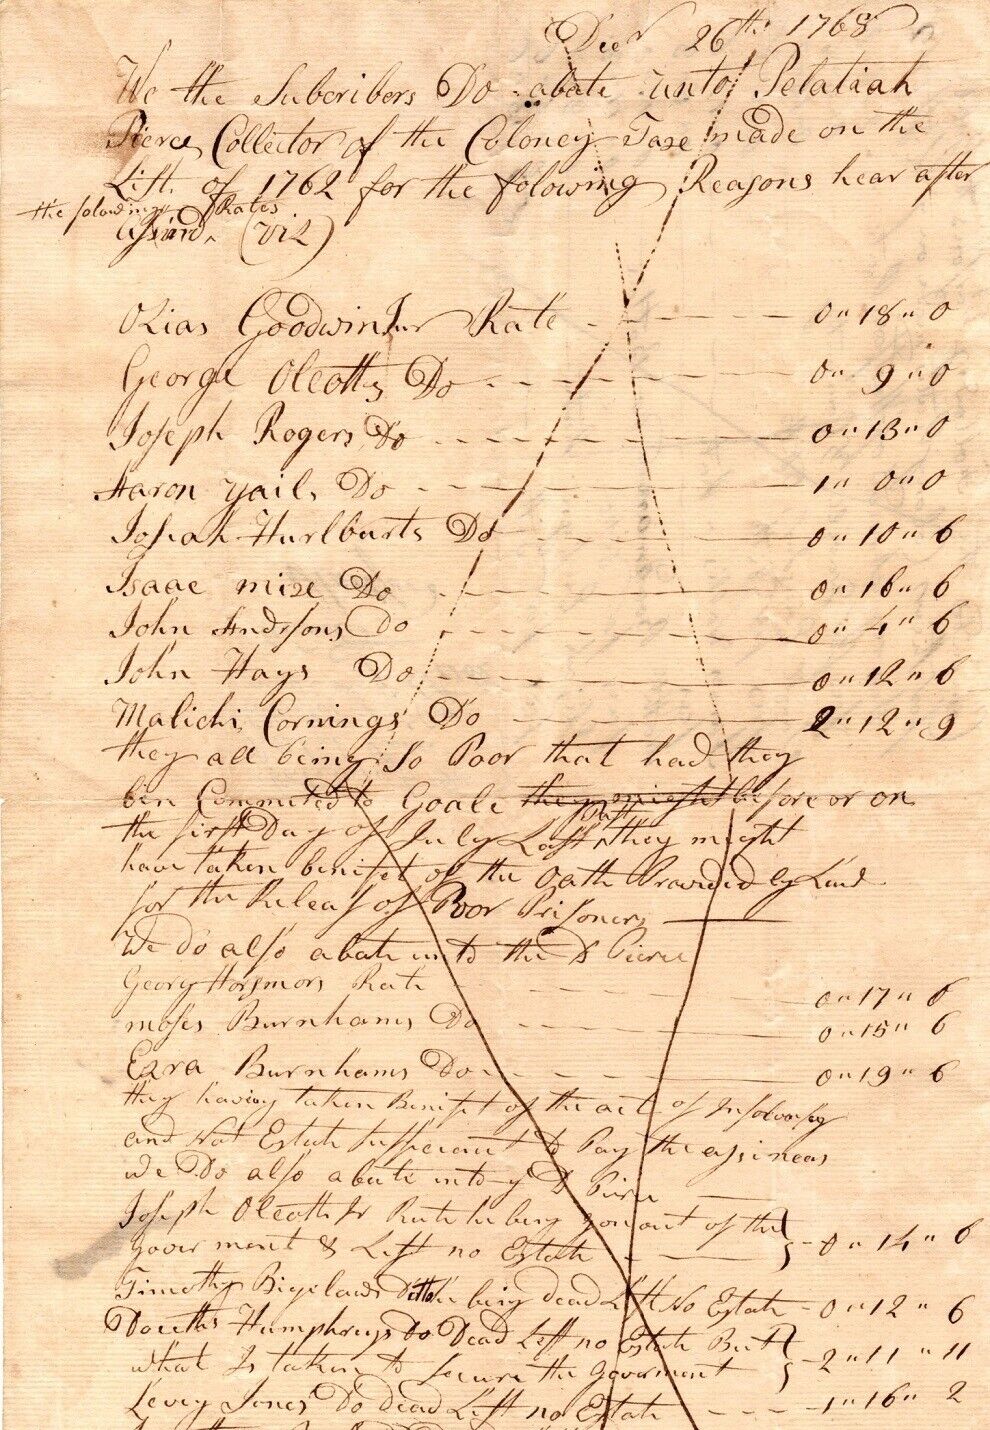 Decr 26th 1768
We the Subcribers Do abate unto Pelatiah
Pierce Collector of the Coloney Taxe made on the
List of 1762 for the folowing Reasons hear after
the folowing Rates
Assind (viz)
Ozias Goodwin Jur Rate - - - 0 " 18 " 0
George Olcotts Do - - - 0 " 9 " 0
Joseph Rogers Do - - - 0 " 13 " 0
Aaron yail Do - - - 1 " 0 " 0
Josiah Hurlburts Do - - - 0 " 10 " 6
Isaac mize Do - - - 0 " 16 " 6
John Andrsons Do - - - 0 " 4 " 6
John Hays Do - - - 0 " 12 " 6
Malichi Cornings Do - - - 2 " 12 " 9
they all being So Poor that had they
ben Commeted to Goale they might before or on
the first Day of July Last Past they might
have taken benifet of the Oath Provided by
for the Releaf of Poor Prisoners
We do also abate unto the Sd Pierce
Georg Horsmors Rate - - - 0 " 17 " 6
moses Burnhams Do - - - 0 " 15 " 6
Ezra Burnhams Do - - - 0 " 19 " 6
they having taken Benifet of the act of Insolvency
and Not Estate sufficient to Pay the
we Do also abate unto ye Sd Pierce
Joseph Olcotts Jr Rate he being gon out of the
goverment & Left no Estate - 0 " 14 " 6
Timothy Bigelows Ditto he being dead Left No Estate - 0 " 12 " 6
Humphreys Do Dead Left no Estate But
what Is taken to Secure the Goverment - 2 " 11 " 11
Levey Jones Do dead Left no Estate - - - 1 " 16 " 2